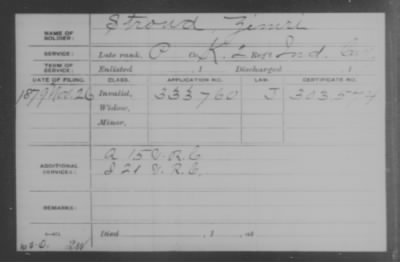 NAME OF SOLDIER: Stroud, Zimri
SERVICE: Late rank, P Co. K, 2 Reg't Ind. Cav.
TERM OF SERVICE: Enlisted , 1 Discharged , 1
DATE OF FILING. CLASS. APPLICATION NO. LAW. CERTIFICATE NO.
1879 Nov. 26 Invalid, 333760 J 303,574
Widow,
Minor,
ADDITIONAL SERVICES: A 15 V.R.C.
I 21 V.R.C.
REMARKS:
Died , 1 , at